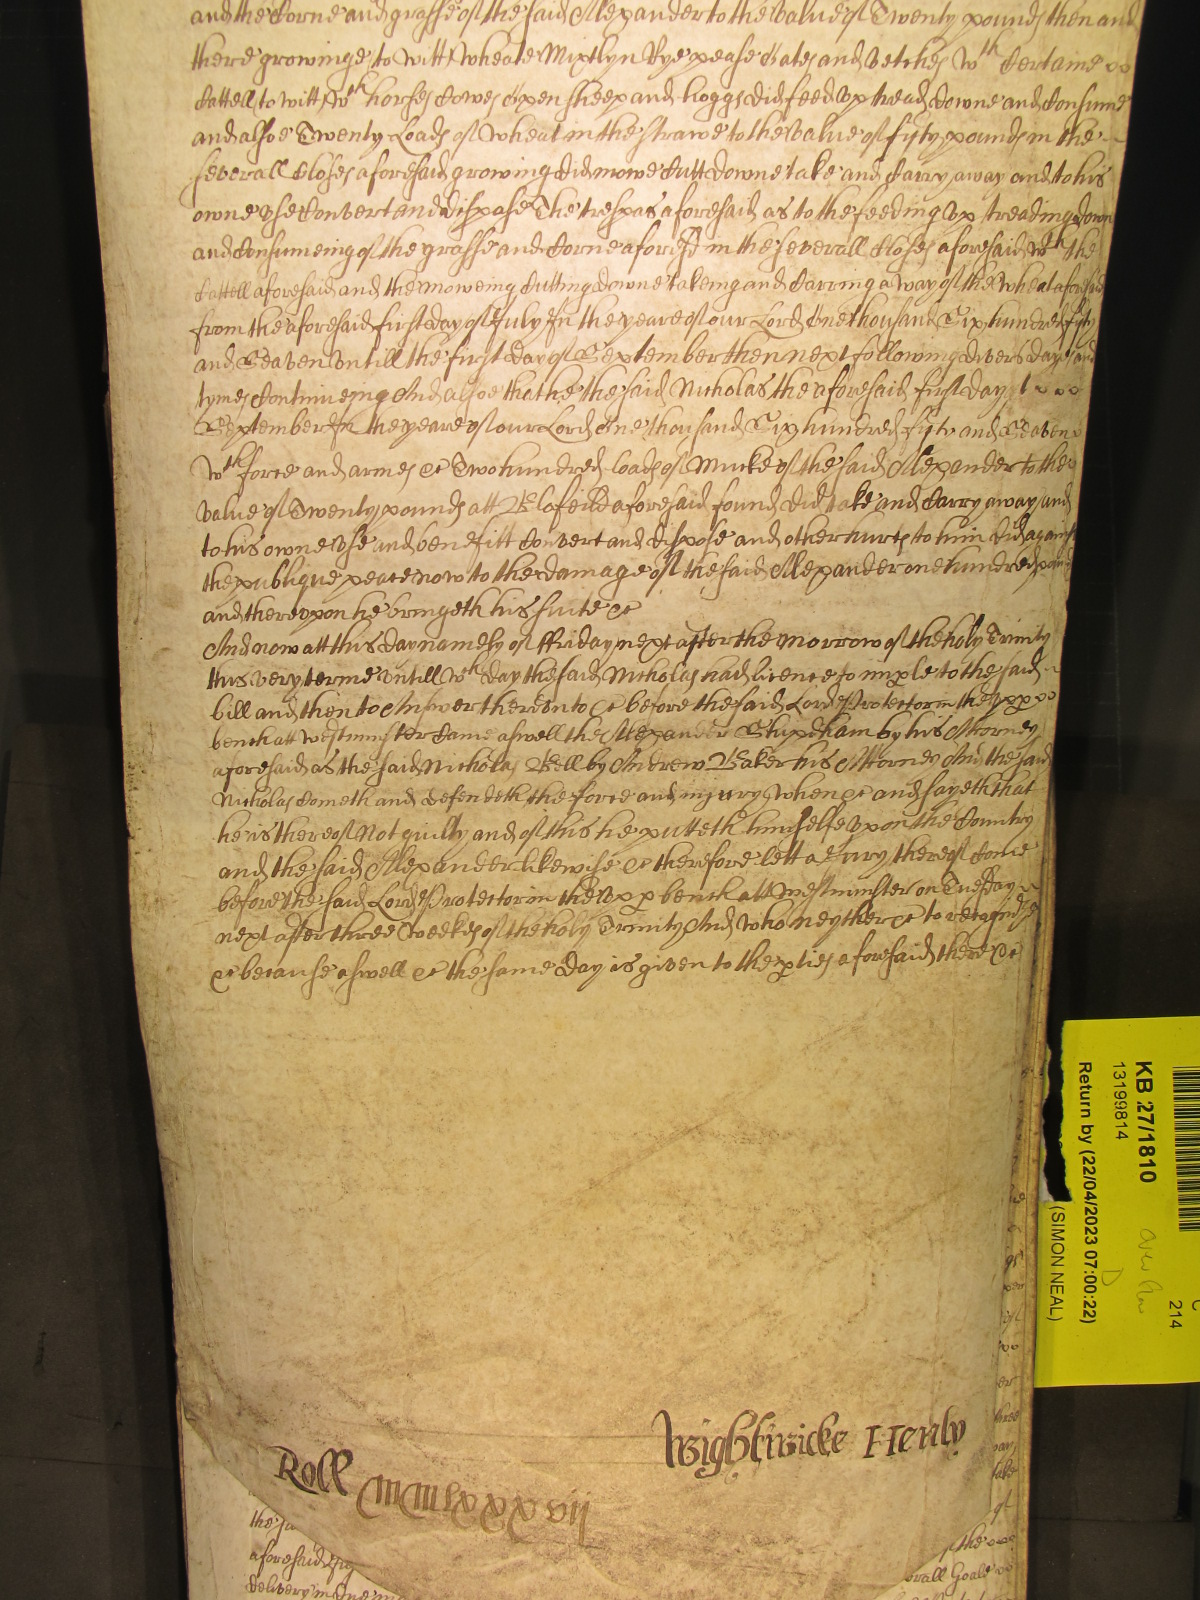 and the Corne and grasse of the said Alexander to the value of Twenty pounds then and
there growinge to witt wheate Mixtlyn Rye pease Oates and Vetches wth Certaine
Cattell to witt wth horses Cowes Oxen sheep and hoggs did feed vp tread downe and Consume
and alsoe Twenty Loads of wheat in the strawe to the value of fifty pounds in the
severall Closes aforesaid growing did mowe Cutt downe take and Carry away and to his
owne vse Convert and dispose The trespas aforesaid as to the feeding vp treading down
and Consumeing of the grasse and Corne aforesd in the severall Closes aforesaid wth the
Cattell aforesaid and the moweing Cutting downe takeing and Carring away of the wheat aforesaid
from the aforesaid first day of July In the yeare of our Lord One thousand Six hundred fifty
and Seaven vntill the first day of September then next following divers dayes and
tymes Continueing And alsoe that he the said Nicholas the aforesaid first day of
September In the yeare of our Lord One thousand Six hundred fifty and Seaven
wth force and armes &c Two hundred loads of Mucke of the said Alexander to the
value of Twenty pounds att Blofeild aforesaid found did take and Carry away and
to his owne vse and benefitt Convert and dispose and other hurts to him did against
the publique peace now to the damage of the said Alexander one hundred pounds
and therevpon he bringeth his suite &c
And now att this day namely of Friday next after the morrow of the holy Trinity
this very terme vntill wch day the said Nicholas had licence to imple to the said
bill and then to Answer therevnto &c before the said Lord Protector in the vpp
bench att westminster Came aswell the Alexander Shipdham by his Attorney
aforesaid as the said Nicholas Bell by Andrew Baker his Attorney And the said
Nicholas Cometh and defendeth the force and injury when &c and sayeth that
he is thereof Not guilty and of this he putteth himselfe vpon the Country
and the said Alexander likewise &c therefore lett a Jury thereof Come
before the said Lord Protector in the vpp bench att westminster on Tuesday
next after three weekes of the holy Trinity And who neyther &c to recognize
&c because aswell &c the same day is given to the pties aforesaid there &c
Wightwicke Henly
Roll MMlxxxvij
the sa
aforesaid
delivery in
the
erall Goale
KB 27/1810
13199814
Return by (22/04/2023 07:00:22)
(SIMON NEAL)
214